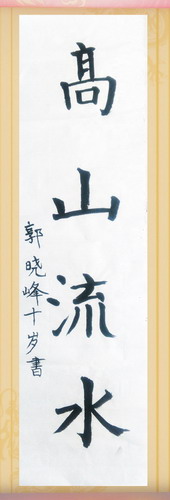 高山流水
郭晓峰十岁書